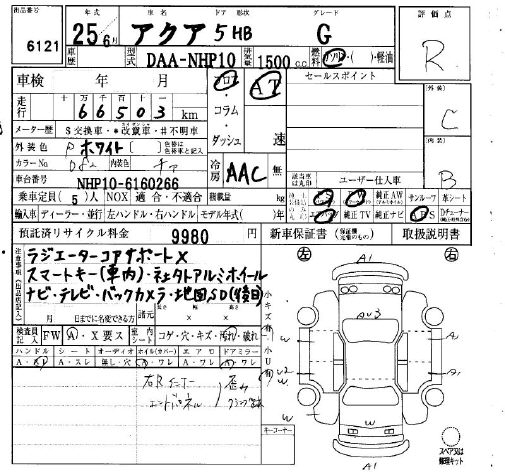 出品番号 6121
年式 25年6月
車名 アクア
ドア 形状 5 HB
グレード G
評価点 R
車歴
型式 DAA-NHP10
排気量 1500 c.c
燃料 ガソリン・( )・軽油
車検 年 月
セールスポイント
走行 十 万 千 百 十 一
66503 km
フロア・コラム・ダッシュ
AT
速
メーター歴 S 交換車・*改竄車・#不明車
外装色 P ホワイト
カラーNo 082 内装色
冷房 AAC
無
外装 C
内装 B
車台番号 NHP10-6160266
ユーザー仕入車
乗車定員(5)人 NOX 適合・不適合
積載量 kg
純正AW サンルーフ 革シート
輸入車 ディーラー・並行 左ハンドル・右ハンドル モデル年式( )年
エアバッグ 純正TV 純正ナビ PS
預託済リサイクル料金 9980 円
新車保証書 取扱説明書
注意事項
ラジエーターコアサポートX
スマートキー(車内)・社外タトアルミホイール
ナビ・テレビ・バックカメラ・地図SD(後日)
月 日までに名変できる方
諸元
検査員記入 FW A・X 要ス
室内シート コゲ・穴・キズ・汚れ・破れ
ハンドル シート オーディオ ホイル(カバー) エアロ ドアミラー
A・ A・スレ 無し・穴 A・ワレ A・ワレ
右Rインナー
エンドパネル
歪み
左 右
A1
AU3
A
A1
U2
W
W
W
A1
小キズ有 小U有
キーコーナー
スペア又は修理キット